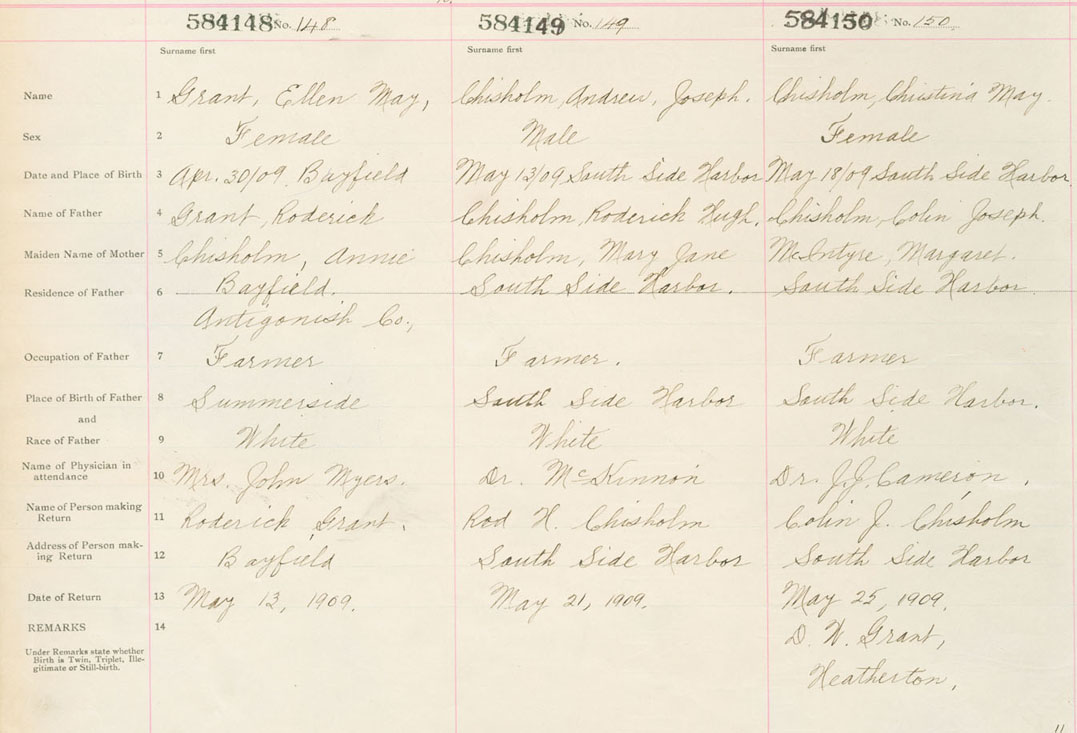 584148 No. 148 584149 No. 149 584150 No. 150
Surname first Surname first Surname first
Name 1 Grant, Ellen May, Chisholm, Andrew, Joseph. Chisholm, Christina May.
Sex 2 Female Male Female
Date and Place of Birth 3 Apr. 30/09 Bayfield May 13/09 South Side Harbor May 18/09 South Side Harbor.
Name of Father 4 Grant, Roderick Chisholm, Roderick Hugh. Chisholm, Colin Joseph.
Maiden Name of Mother 5 Chisholm, Annie Chisholm, Mary Jane McIntyre, Margaret.
Residence of Father 6 Bayfield. South Side Harbor. South Side Harbor
Antigonish Co.,
Occupation of Father 7 Farmer Farmer. Farmer
Place of Birth of Father 8 Summerside South Side Harbor South Side Harbor.
and
Race of Father 9 White White White
Name of Physician in
attendance 10 Mrs. John Myers. Dr. McKinnon Dr. J.J. Cameron,
Name of Person making
Return 11 Roderick Grant. Rod H. Chisholm Colin J. Chisholm
Address of Person mak-
ing Return 12 Bayfield South Side Harbor South Side Harbor
Date of Return 13 May 13, 1909. May 21, 1909. May 25, 1909.
REMARKS 14 D. W. Grant,
Under Remarks state whether
Birth is Twin, Triplet, Ille-
gitimate or Still-birth.
Heatherton,
11